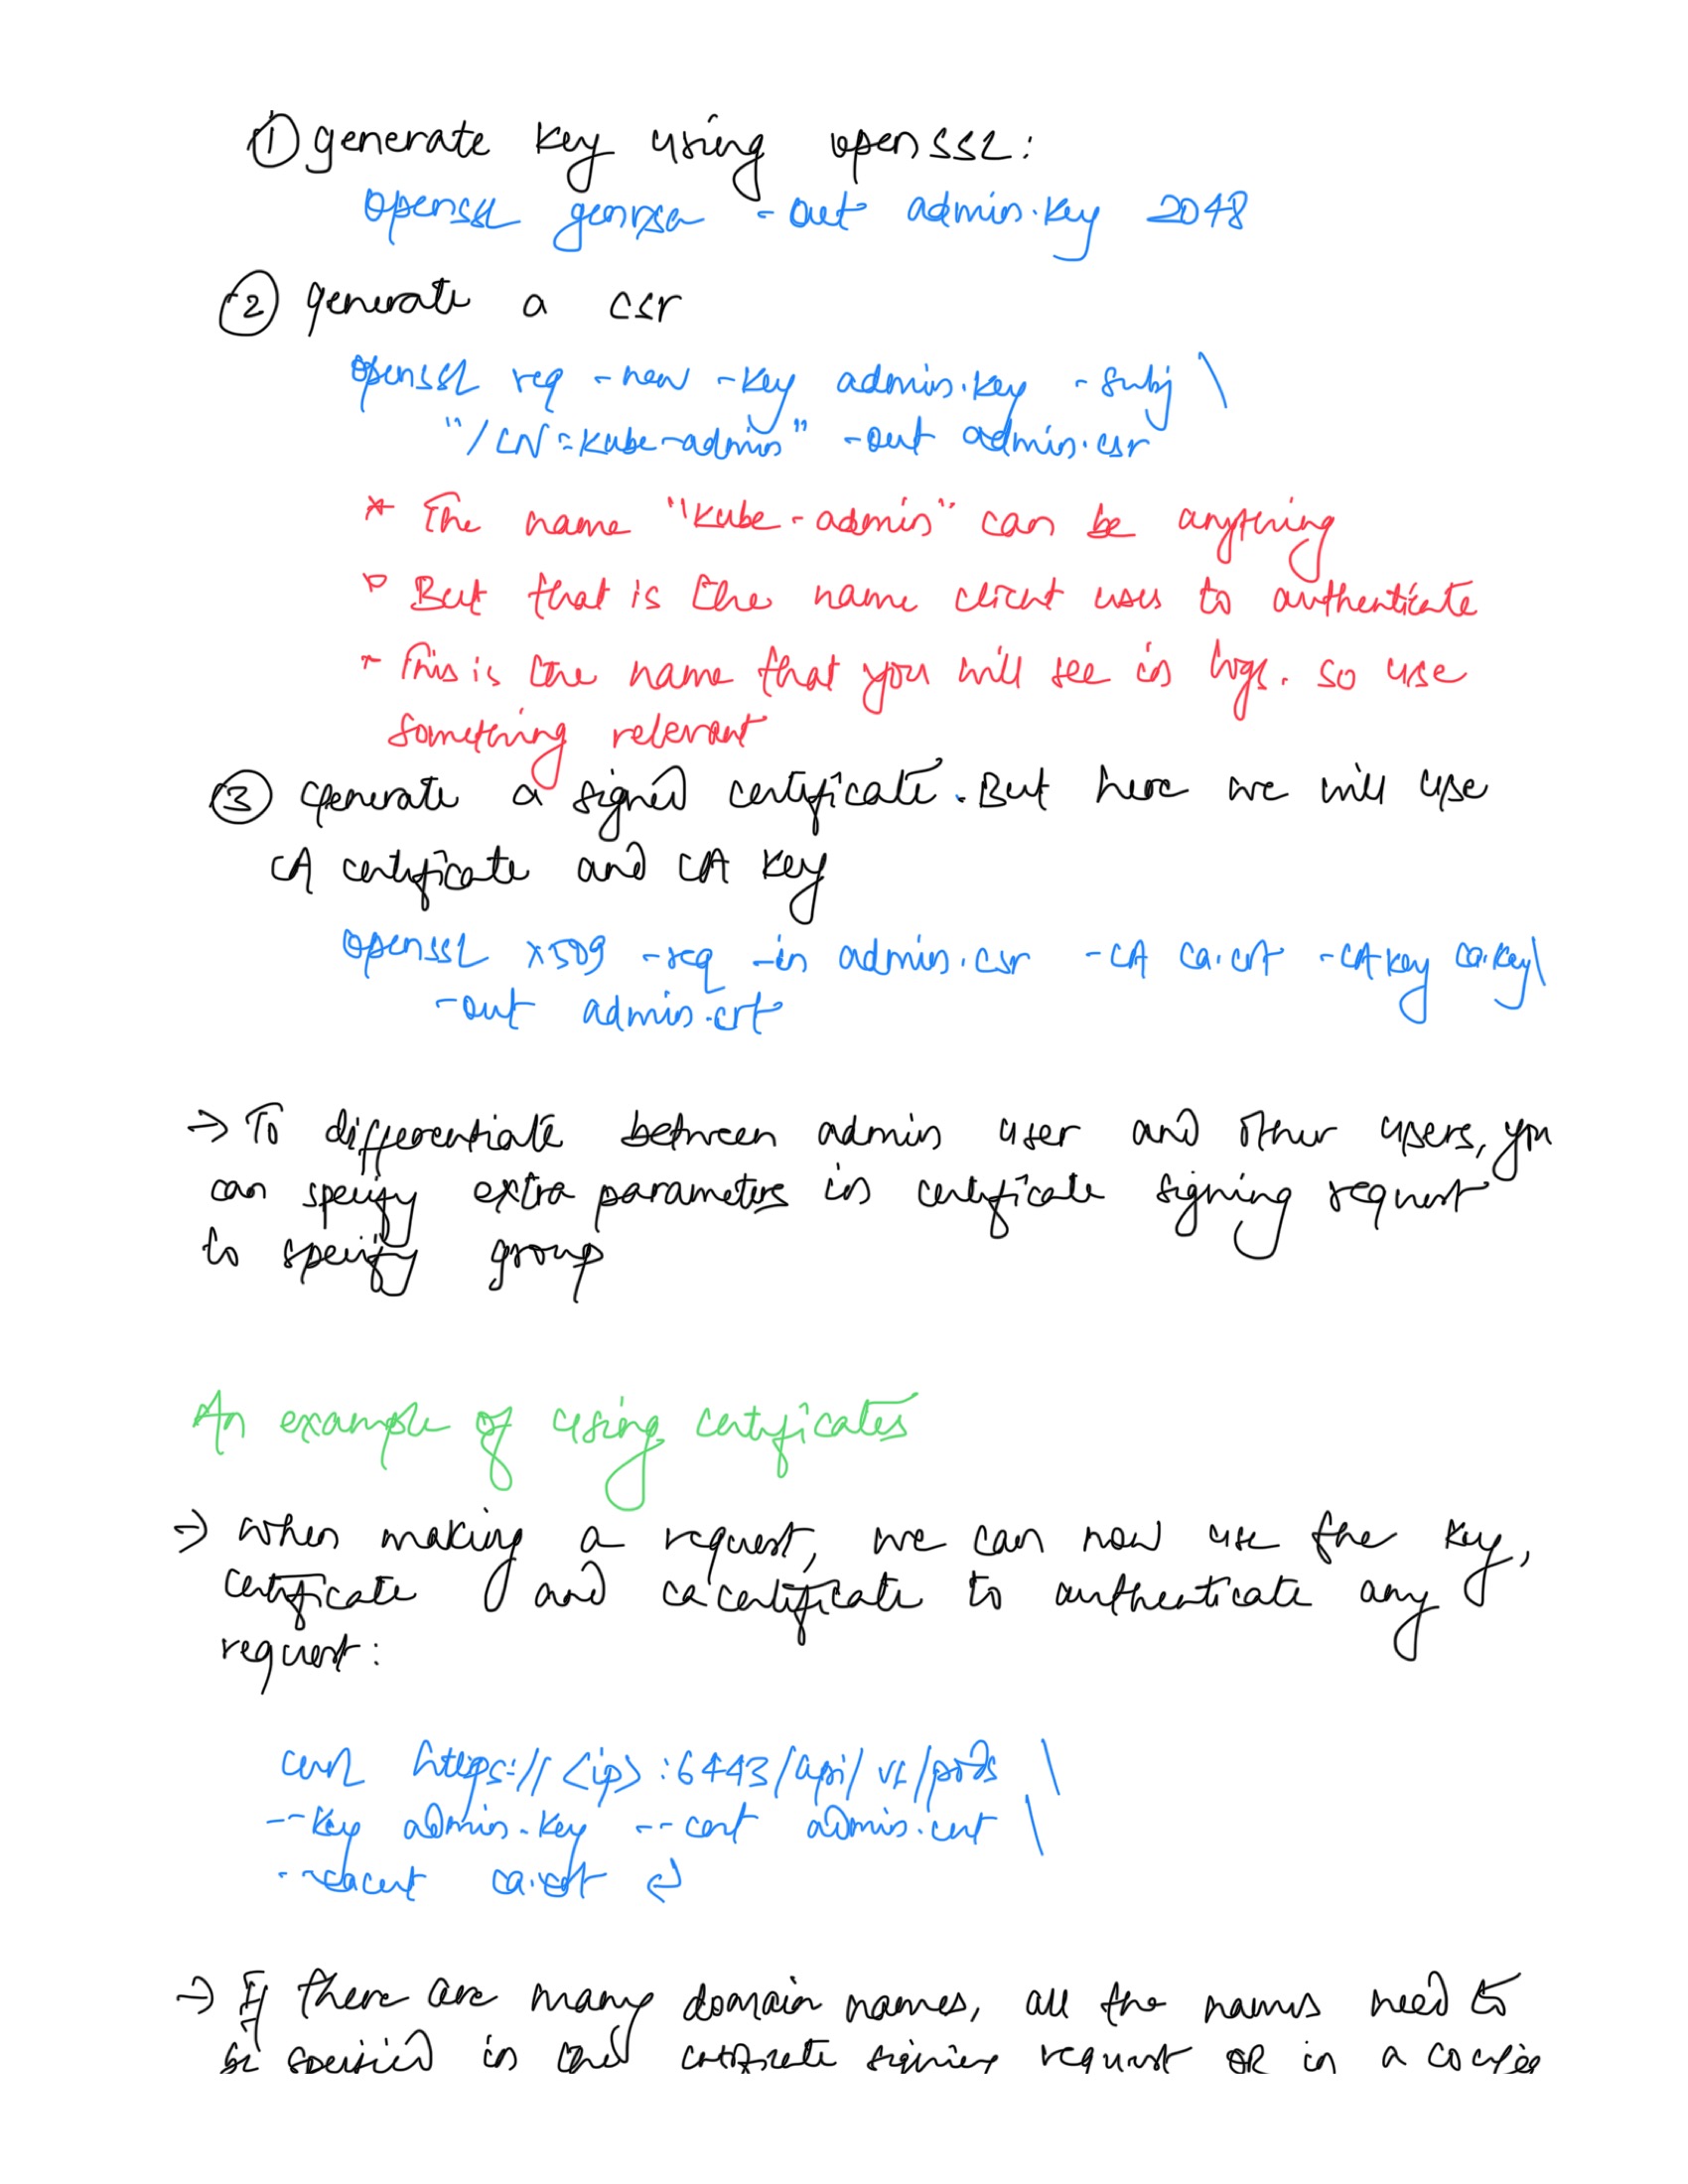 ① generate key using openSSL:
openssl genrsa -out admin.key 2048
② generate a csr
openssl req -new -key admin.key -subj \
"/CN=kube-admin" -out admin.csr
* The name "kube-admin" can be anything
* But that is the name client uses to authenticate
* This is the name that you will see in logs. so use
something relevant
③ generate a signed certificate. But here we will use
CA certificate and CA key
openssl x509 -req -in admin.csr -CA ca.crt -CAkey ca.key \
-out admin.crt
→ To differentiate between admin user and other users, you
can specify extra parameters in certificate signing request
to specify group
An example of using certificates
→ when making a request, we can now use the key,
certificate and ca certificate to authenticate any
request:
curl https://<ip>:6443/api/v1/pods \
--key admin.key --cert admin.cert \
--cacert ca.crt ↵
→ If there are many domain names, all the names need to
be specified in the certificate signing request OR in a config